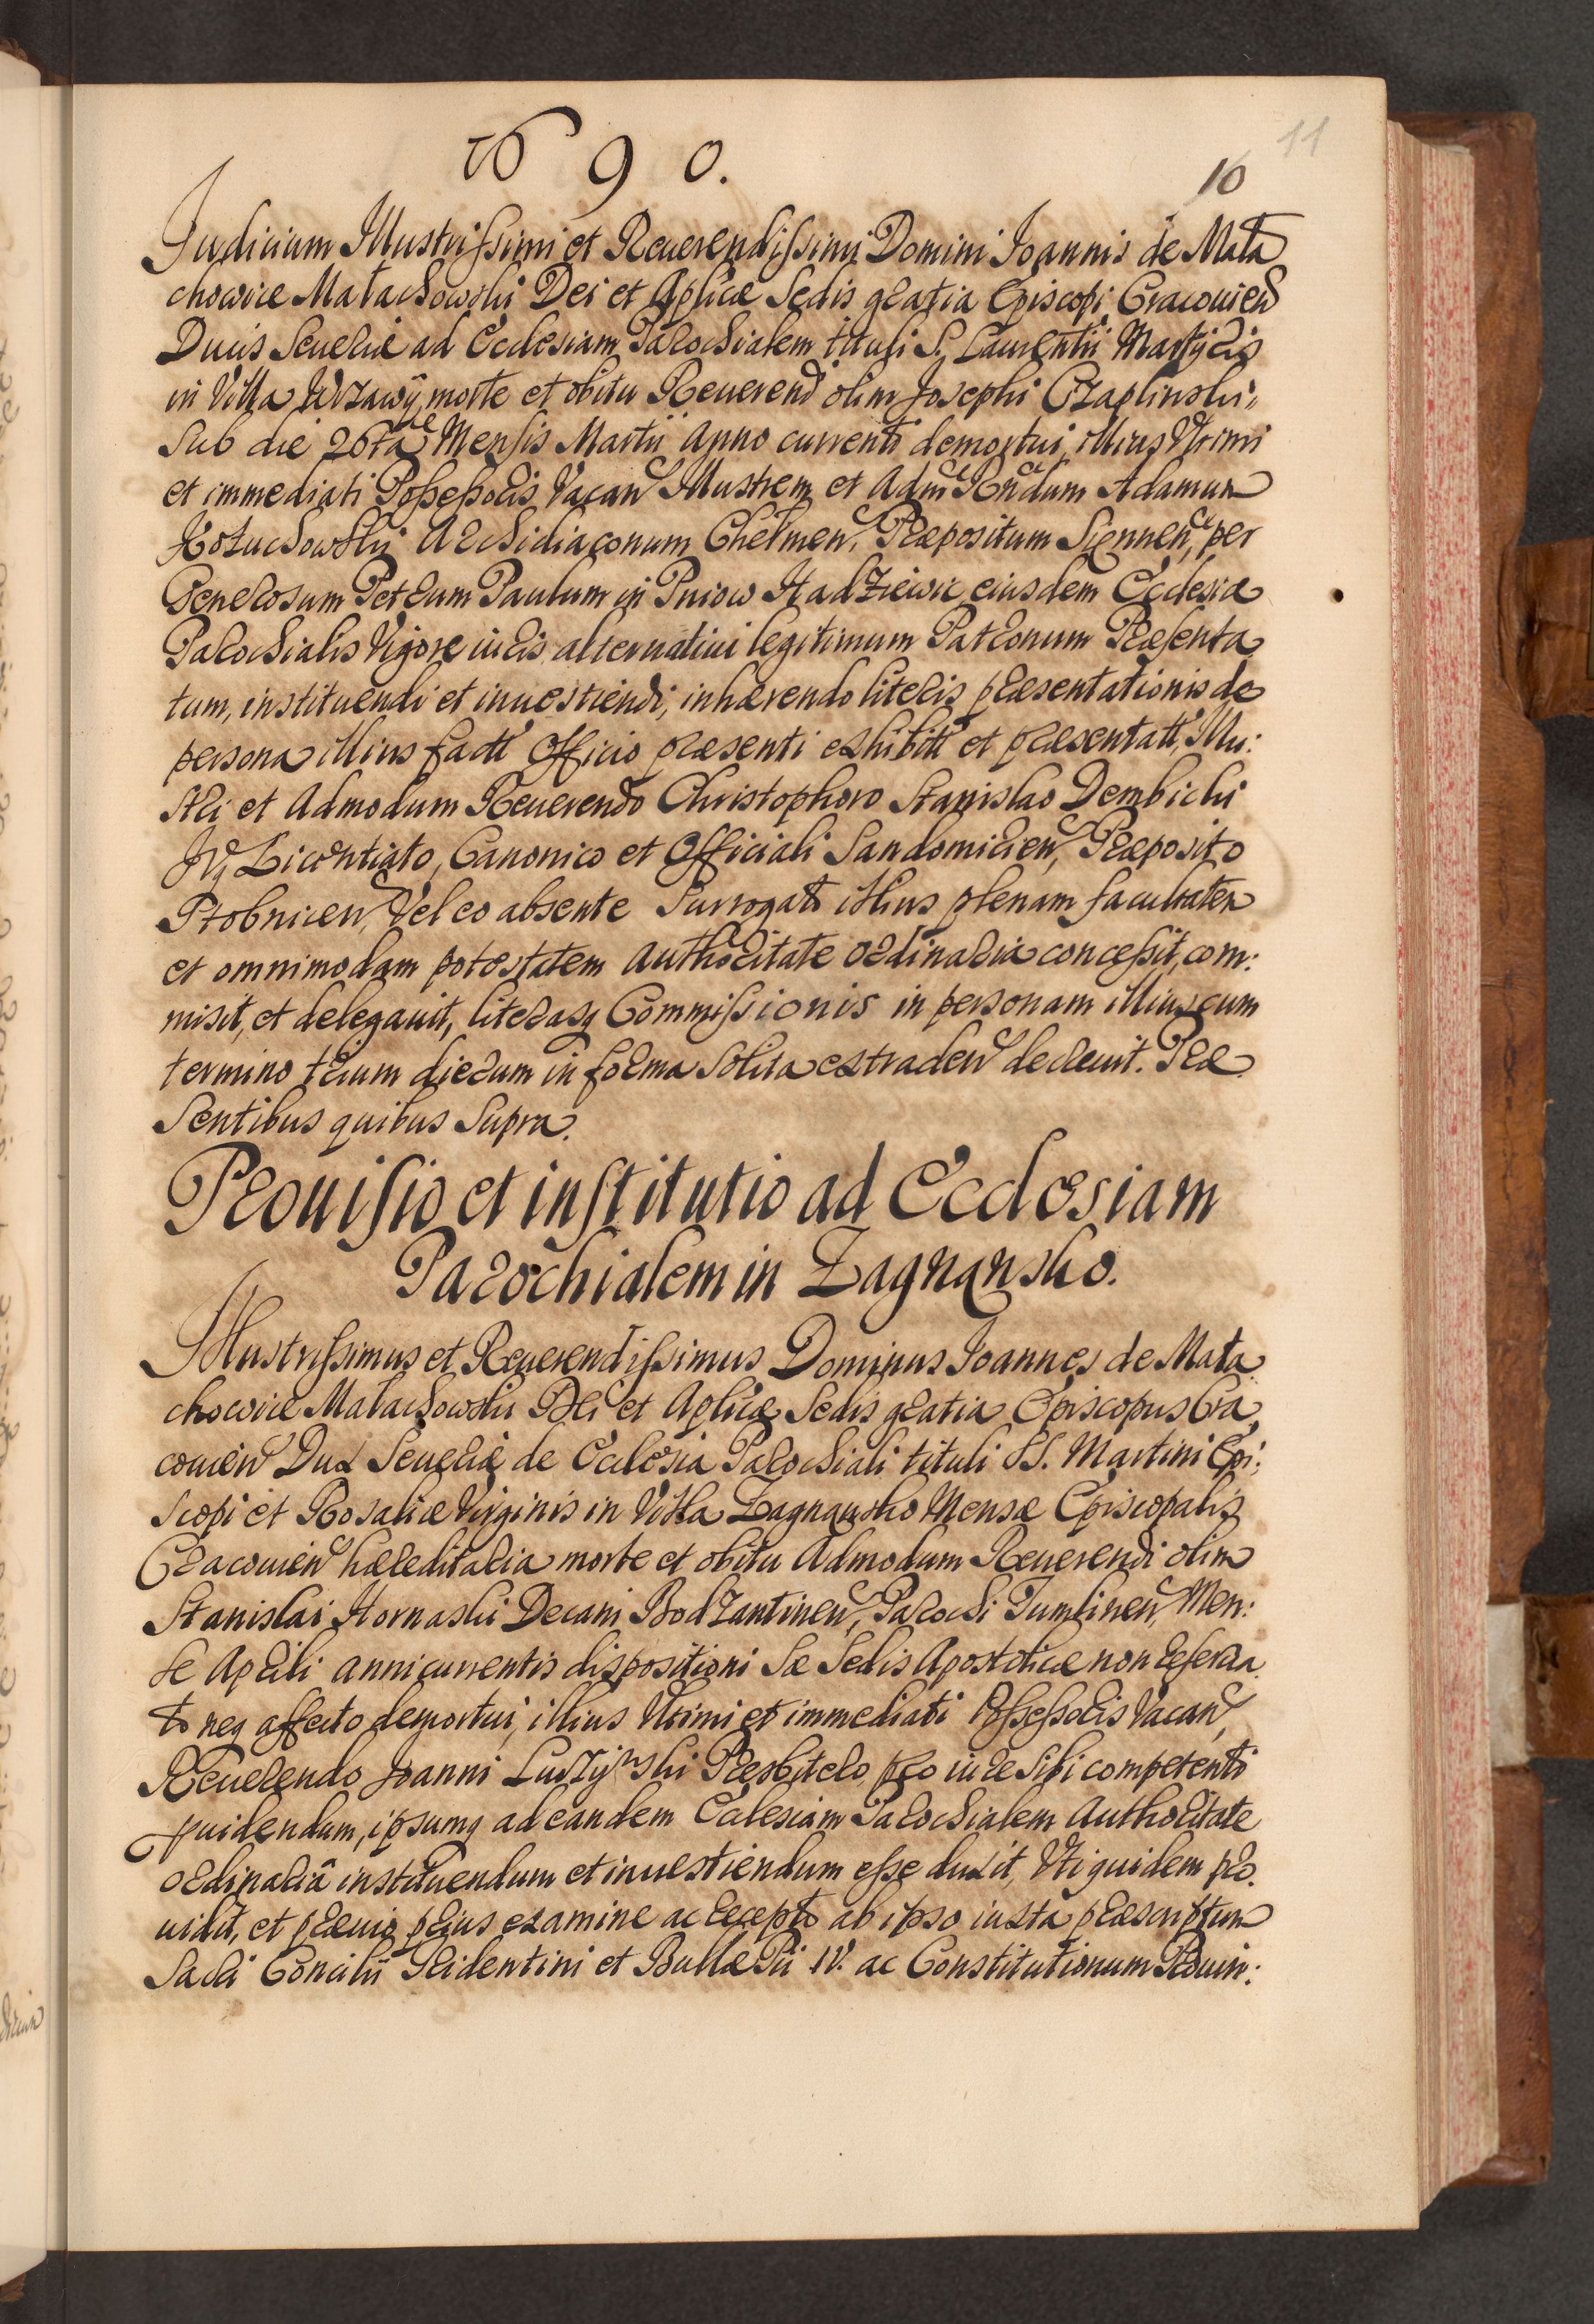 1690.
11
10
Judicium Illustrissimi et Reuerendissimi Domini Joannis de Mała
chowice Małachowski Dei et Aplicæ Sedis gratia Episcopi Cracouien
Ducis Seueriæ ad Ecclesiam Parochialem tituli S. Laurentii Martyris
in Villa Wrzawÿ, morte et obitu Reuerend olim Josephi Czaplinski
Sub die 26ta Mensis Martii Anno currenti demortui, illius Vltimi
et immediati Possessoris Vacan Illustrem et Adm Rndum Adamum
Archidiaconum Chełmen, Præpositum Siennen, per
Generosum Petrum Paulum in Pniow Hadziewic eiusdem Ecclesiæ
Parochialis Vigore iuris alternatiui legitimum Patronum Præsenta
tum, instituendi et inuestiendi, inhærendo literis præsentationis de
persona illius factt Officio præsenti exhibitt et præsentatt, Illu:
stri et Admodum Reuerendo Christophoro Stanislao Dembicki
JVq Licentiato, Canonico et Officiali Sandomirien, Præposito
Ptobnicen, Vel eo absente Surrogato illius plenam facultatem
et omnimodam potestatem Authoritate ordinaria concessit, com:
misit, et delegauit, literasq Commissionis in personam illius cum
termino trium dierum in forma Solita extraden decreuit. Præ
Sentibus quibus Supra.
Prouisio et institutio ad Ecclesiam
Parochialem in Zagnansko.
Illustrissimus et Reuerendissimus Dominus Joannes de Mała
chowice Małachowski Dei et Aplicæ Sedis gratia Episcopus Cra
couien Dux Seueriæ de Ecclesia Parochiali tituli SS. Martini Epi:
scopi et Rosaliæ Virginis in Villa Zagnansko Mensæ Episcopalis
Cracouien hæreditaria morte et obitu Admodum Reuerendi olim
Stanislai Hornaski Decani Bodzantinen, Parochi Tumlinen, Men:
se Aprili anni currentis dispositioni Sæ Sedis Apostolicæ non reserua
to neq affecto demortui, illius Vltimi et immediati Possessoris Vacan,
Reuerendo Joanni Præsbitero pro iure Sibi competenti
puidendum, ipsumq ad eandem Ecclesiam Parochialem Authoritate
ordinariâ instituendum et inuestiendum esse duxit, Vti quidem pro
uidit, et præuio prius examine ac recepto ab ipso iuxta præscriptum
Sacri Concilii Tridentini et Bullæ Pii IV. ac Constitutionum Prouin: